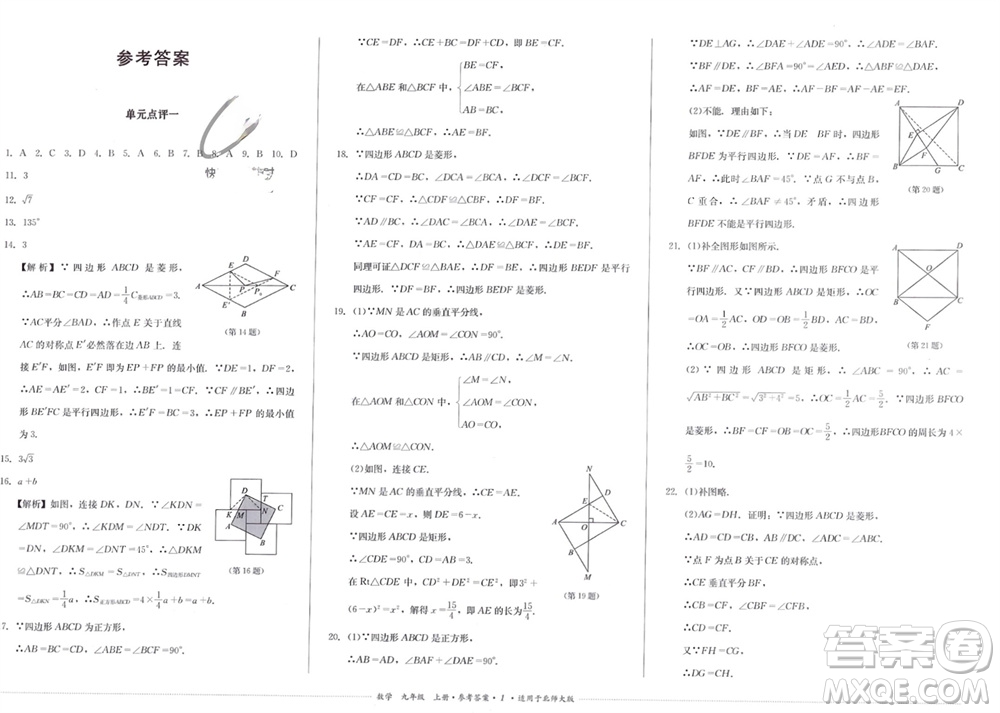 参考答案
单元点评一
1. A 2. C 3. D 4. D 5. B 6. D 7. B 8. A 9. B 10. D
11. 3
12. √7
13. 135°
14. 3
【解析】∵四边形 ABCD 是菱形，
∴AB=BC=CD=DA=1/4 C菱形ABCD=3.
∵AC平分∠BAD，∴作点 E 关于直线
AC 的对称点 E′必然落在边 AB 中，连
接E′F，如图，即为 EP+FP 的最小值. ∵DE=1，DF=2，
∴AE=AE′=2，CF=1. ∴BE′=CF=1. ∴四边
形 BE′FC 是平行四边形，∴E′F=BC=3. ∴EP+FP 的最小值
为 3.
（第 14 题）
15. 3√3
16. a+b
【解析】如图，连接 DK，DN. ∵∠KDN
=∠MDT=90°，∴∠KDM=∠NDT. ∵DK
=DN，∠DKM=∠DNT=45°，∴△DKM
≌△DNT，∴S△DKM=S△DNT，∴S四边形DMNT
=S△DKN=1/4 a，∴S正方形ABCD=4×1/4 a+b=a+b.
（第 16 题）
7. ∵四边形 ABCD 为正方形，
∴AB=BC=CD，∠ABE=∠BCF=90°.
∵CE=DF，∴CE+BC=DF+CD，即 BE=CF.
在△ABE 和△BCF 中，{BE=CF，
∠ABE=∠BCF，
AB=BC，
∴△ABE≌△BCF.
18. ∵四边形 ABCD 是菱形，
∴DA=CD=BC=AB，∠DCA=∠BCA.
∴△CDF≌△CBF，∴DF=BF.
∵AD∥BC，∴∠DAE=∠BCF.
∵AE=CF，∴△DAE≌△BCF. ∴DE=BF.
同理可证△DCF≌△BAE. ∴四边形 BEDF 是平行四
边形. ∴四边形 BEDF 是菱形.
19. (1)∵MN 是 AC 的垂直平分线，
∴AO=CO，∠AOM=∠CON=90°.
∵四边形 ABCD 是矩形，∴AB∥CD，∴∠M=∠N.
在△AOM 和△CON 中，{∠M=∠N，
∠AOM=∠CON，
AO=CO，
∴△AOM≌△CON.
(2)如图，连接 CE.
∵MN 是 AC 的垂直平分线，∴CE=AE.
设 AE=CE=x，则 DE=6-x.
∵四边形 ABCD 是矩形，
∴∠CDE=90°，CD=AB=3.
在 Rt△CDE 中，CD²+DE²=CE²，即 3²+
(6-x)²=x². 解得 x=15/4，即 AE 的长为15/4.
（第 19 题）
20. (1)∵四边形 ABCD 是正方形，
∴AB=AD，∠BAD=90°.
∵DE⊥AG，∴∠DEG=∠AED=90°.
∴∠ADE+∠DAE=90°.
∵BF∥DE，∴∠AFB=∠DEG=∠AED=90°.
在△ABF 和△DAE 中，∴△ABF≌△DAE.
∴AF=DE. ∴AF-BF=AF-AE=EF.
(2)不能. 理由如下：
如图，∵DE∥BF，∴若 DE=BF，则四边形
BFDE 为平行四边形. ∵DE=AF，∴BF=
AF. ∴∠BAF=45°. ∵点 G 不与点 B，
C 重合，∴∠BAF≠45°，矛盾，∴四边形
BFDE 不能是平行四边形.
（第 20 题）
21. (1)补全图形如图所示.
∵BF∥AC，CF∥BD，∴四边形 BFCO 是平
行四边形. 又∵四边形 ABCD 是矩形，∴OC
=OA=1/2 AC，OB=OD=1/2 BD，AC=BD.
∴OC=OB. ∴四边形BFCO 是菱形.
（第 21 题）
(2)∵四边形 ABCD 是矩形，∴∠ABC=90°，∴AC=
√(AB²+BC²)=√(3²+4²)=5，∴OC=1/2 AC=5/2. ∵四边形 BFCO
是菱形，∴CF=FD=OB=OC=5/2. ∴四边形BFCO 的周长为 4×
5/2=10.
22. (1)补图略.
(2)AG=DH. 证明：∵四边形ABCD是菱形，
∴AD=CD=CB，∠ABC=∠ADC=60°.
∵点 F 为点 B 关于CE 的对称点，
∴CE 垂直平分BF.
∴CB=CF，∠CBF=∠CFB.
∴CD=CF.
又∵FH=CG，
∴DG=CH.
数学 九年级 上册·参考答案·1·适用于北师大版
答案圈
MXQE.COM